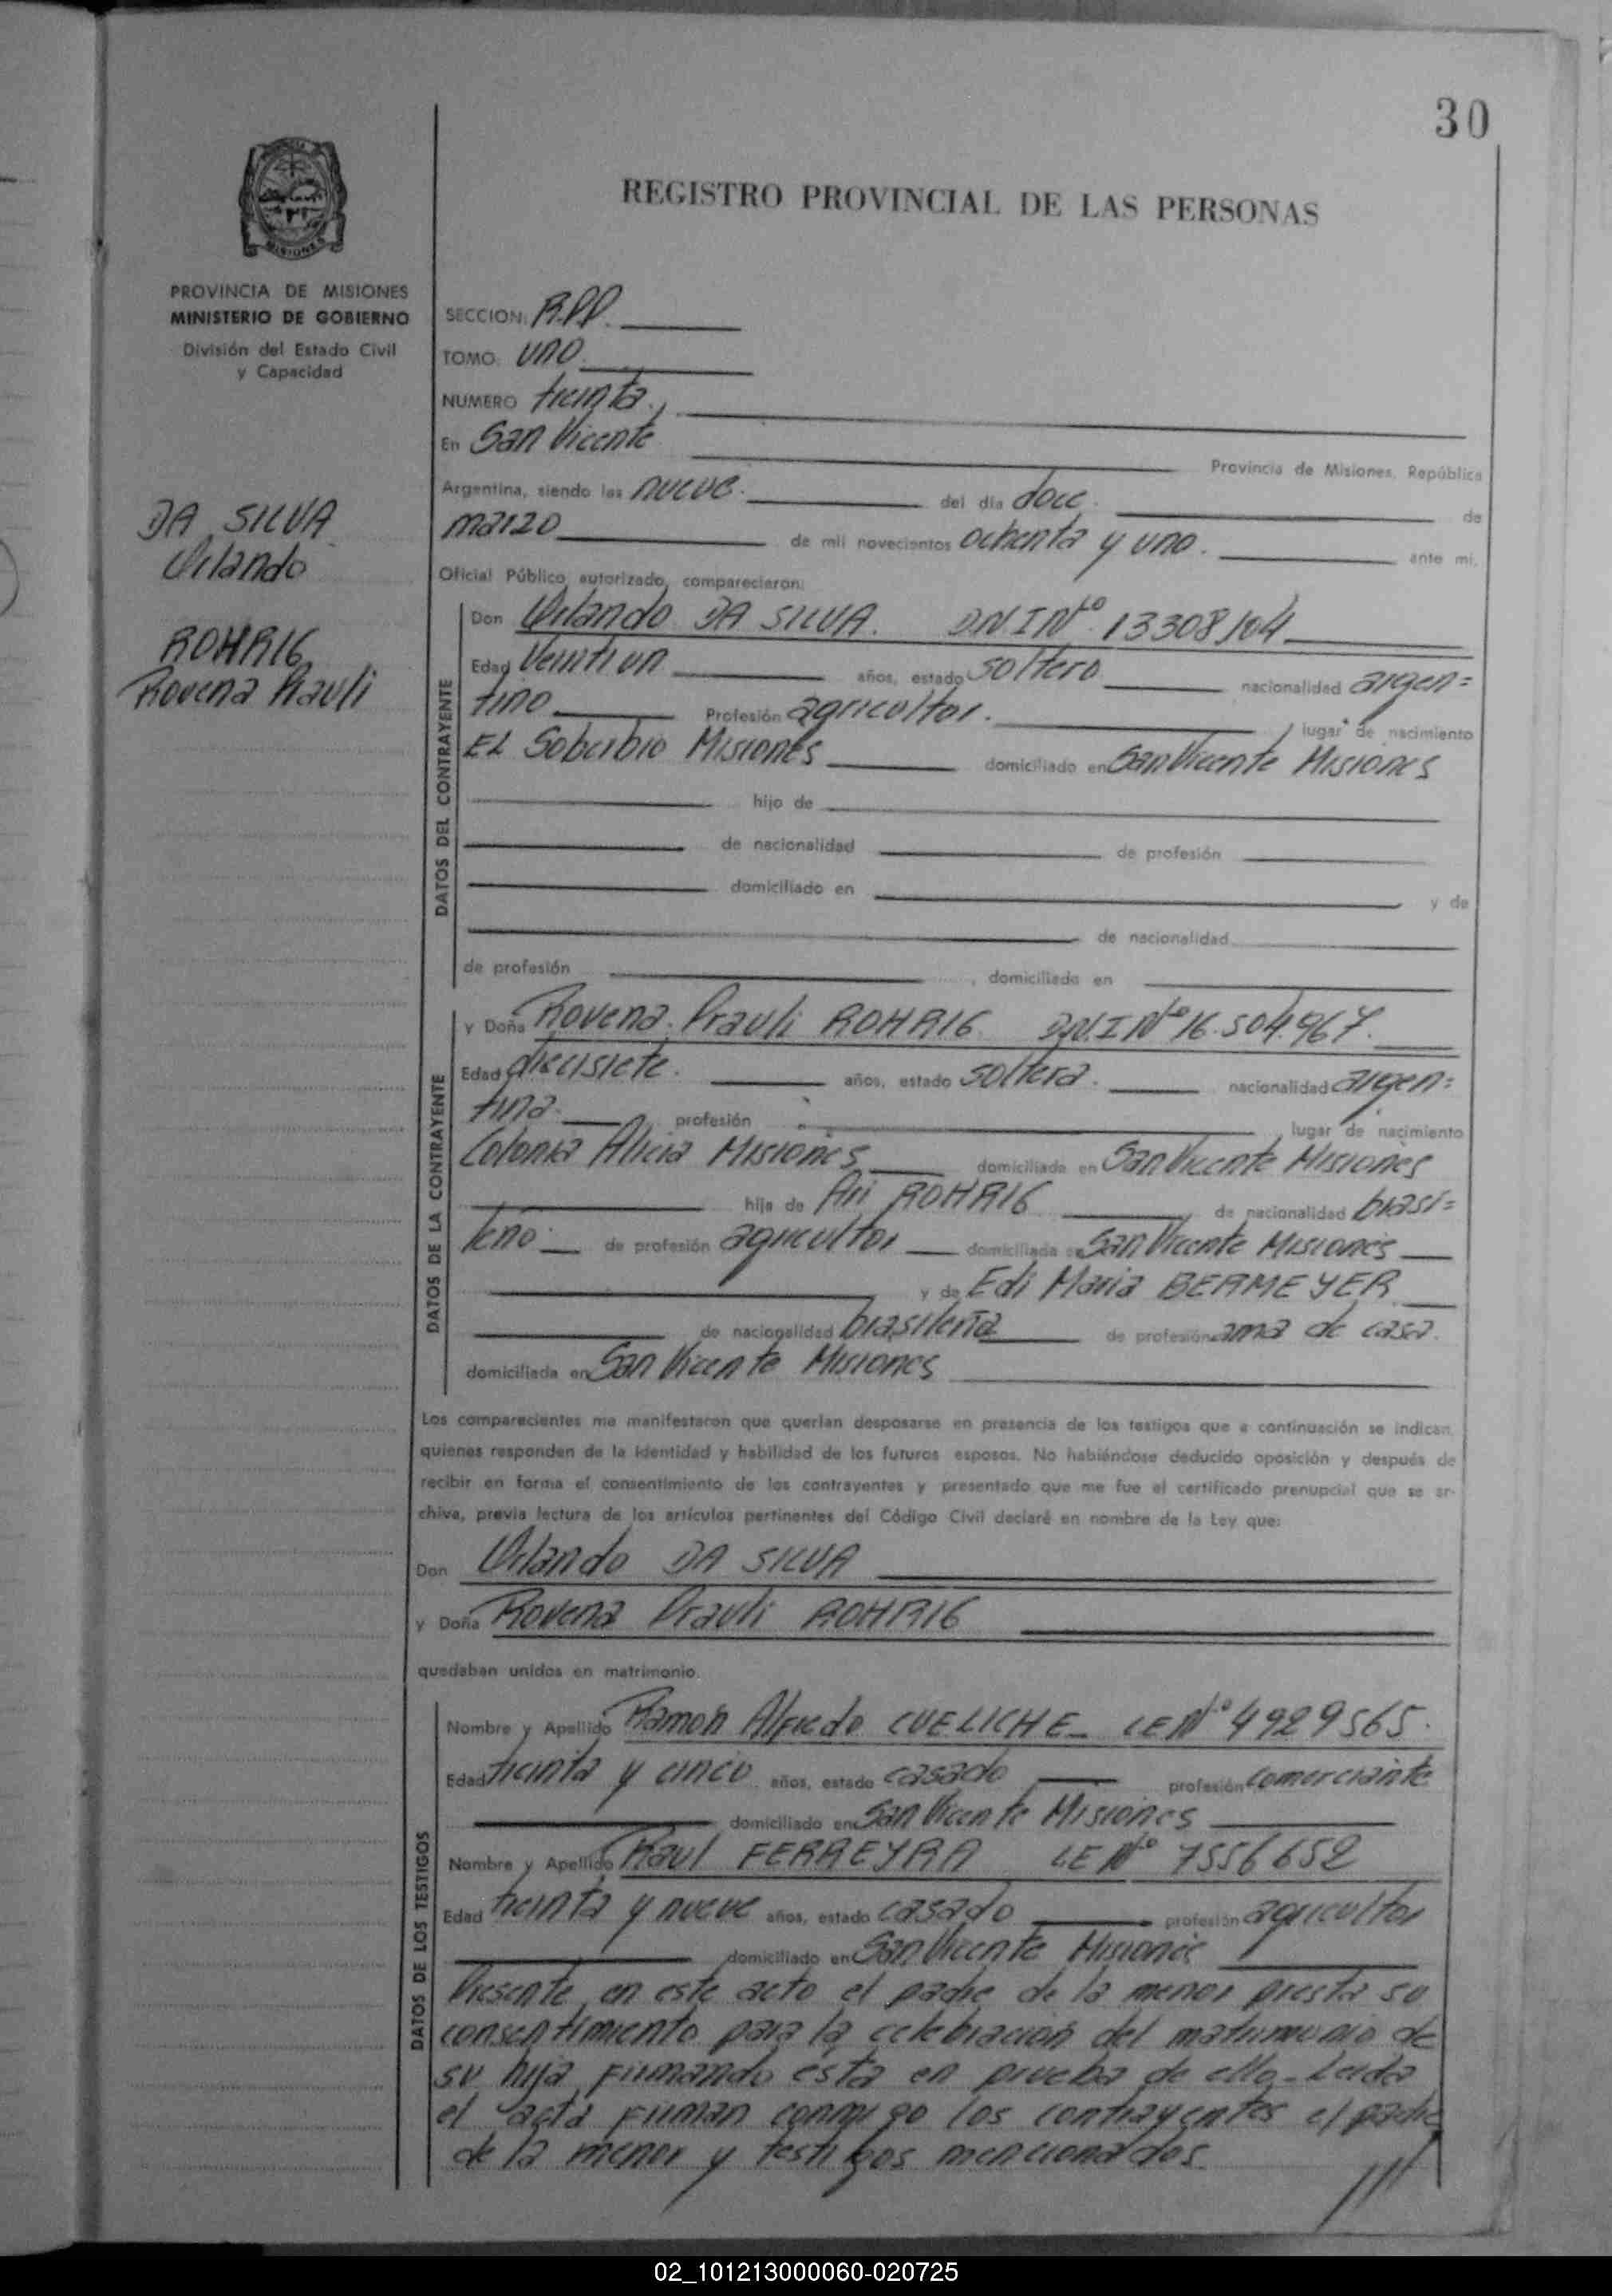 30
REGISTRO PROVINCIAL DE LAS PERSONAS
MISIONES
PROVINCIA DE MISIONES
MINISTERIO DE GOBIERNO
División del Estado Civil
y Capacidad
DA SILVA
Orlando
ROHRIG
Rovena Prauli
SECCION: R.P.P.
TOMO: uno
NUMERO treinta.
En San Vicente Provincia de Misiones, República
Argentina, siendo las nueve. del día doce. de
marzo de mil novecientos ochenta y uno. ante mi,
Oficial Público autorizado, comparecieron:
DATOS DEL CONTRAYENTE
Don Orlando DA SILVA. DNI Nº 13308104
Edad Veintiun años, estado soltero nacionalidad argen=
tino Profesión agricultor. lugar de nacimiento
EL Soberbio Misiones domiciliado en San Vicente Misiones
hijo de
de nacionalidad de profesión
domiciliado en y de
de nacionalidad
de profesión , domiciliada en
DATOS DE LA CONTRAYENTE
y Doña Rovena Prauli ROHRIG DN.I Nº 16.504.967.
Edad diecisiete. años, estado soltera. nacionalidad argen=
tina. profesión lugar de nacimiento
Colonia Alicia Misiones domiciliada en San Vicente Misiones
hija de Ari ROHRIG de nacionalidad brasi=
leño. de profesión agricultor domiciliado en San Vicente Misiones
y de Edi Maria BERMEYER
de nacionalidad brasileña de profesión ama de casa.
domiciliada en San Vicente Misiones
Los comparecientes me manifestaron que querían desposarse en presencia de los testigos que a continuación se indican,
quienes responden de la identidad y habilidad de los futuros esposos. No habiéndose deducido oposición y después de
recibir en forma el consentimiento de los contrayentes y presentado que me fue el certificado prenupcial que se ar-
chiva, previa lectura de los artículos pertinentes del Código Civil declaré en nombre de la Ley que:
Don Orlando DA SILVA
y Doña Rovena Prauli ROHRIG
quedaban unidos en matrimonio.
DATOS DE LOS TESTIGOS
Nombre y Apellido Ramon Alfredo CUELICHE LE Nº 4929565.
Edad treinta y cinco años, estado casado profesión comerciante
domiciliado en San Vicente Misiones
Nombre y Apellido Raul FERREYRA LE Nº 7556652
Edad treinta y nueve años, estado casado profesión agricultor
domiciliado en San Vicente Misiones
Presente en este acto el padre de la menor presta su
consentimiento para la celebracion del matrimonio de
su hija firmando esta en prueba de ello. Leida
el acta firman conmigo los contrayentes el padre
de la menor y testigos mencionados.
02_101213000060-020725